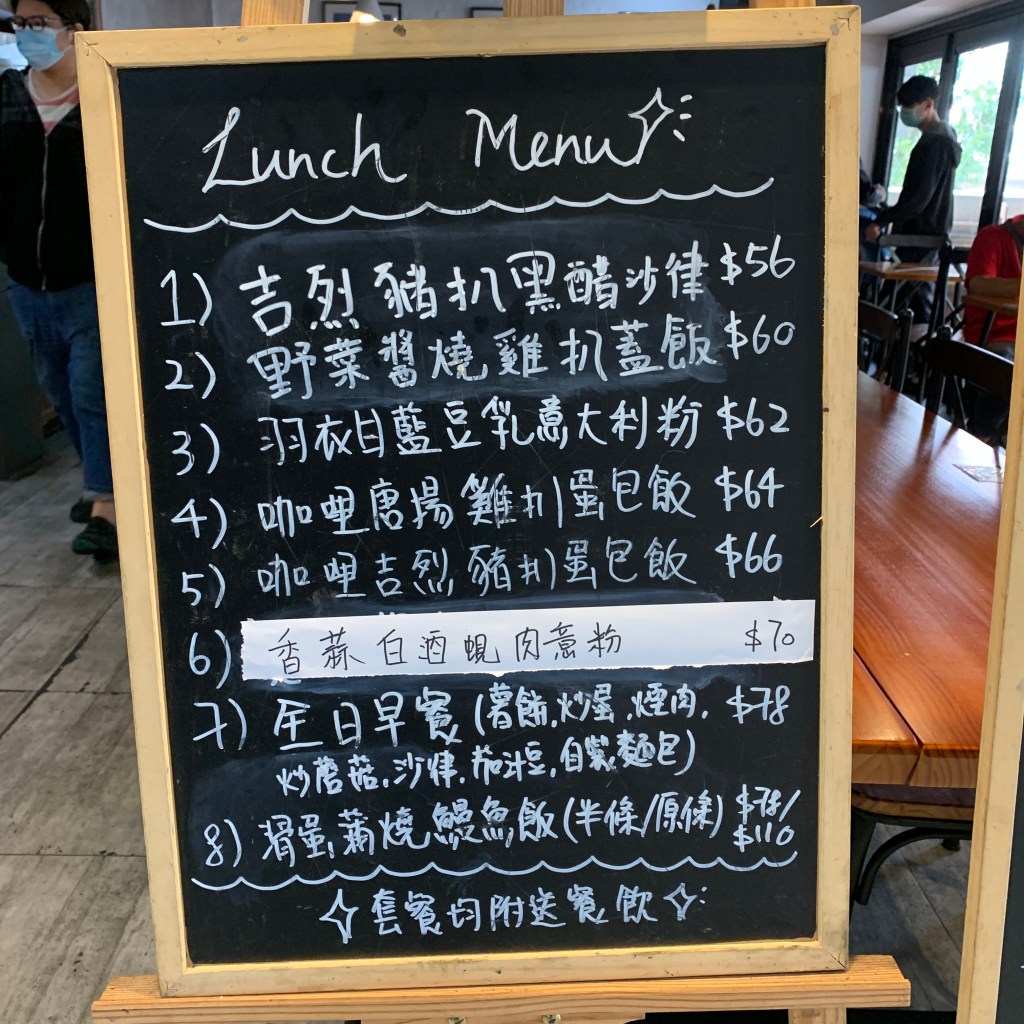 Lunch Menu
1) 吉烈豬扒黑醋沙律 $56
2) 野菜醬燒雞扒蓋飯 $60
3) 羽衣甘藍豆乳意大利粉 $62
4) 咖哩唐揚雞扒蛋包飯 $64
5) 咖哩吉烈豬扒蛋包飯 $66
6) 香蒜白酒蜆肉意粉 $70
7) 全日早餐(薯餅,炒蛋,煙肉, $78
炒蘑菇,沙律,茄汁豆,自製麵包)
8) 滑蛋蒲燒鰻魚飯(半條/原條) $78/
$110
套餐均附送餐飲